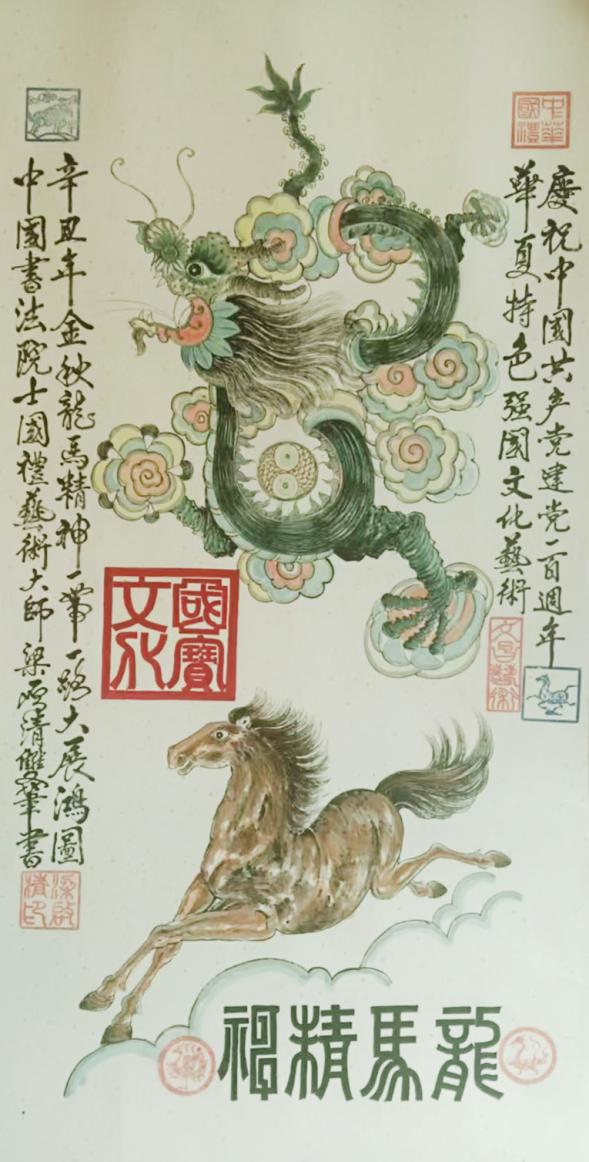 中華國禮
慶祝中國共产党建党一百週年
華夏特色强國文化藝術
國寶文化
龍馬精神
辛丑年金秋龍馬精神一帶一路大展鴻圖
中國書法院士國禮藝術大師梁啟清雙筆書
梁啟清印